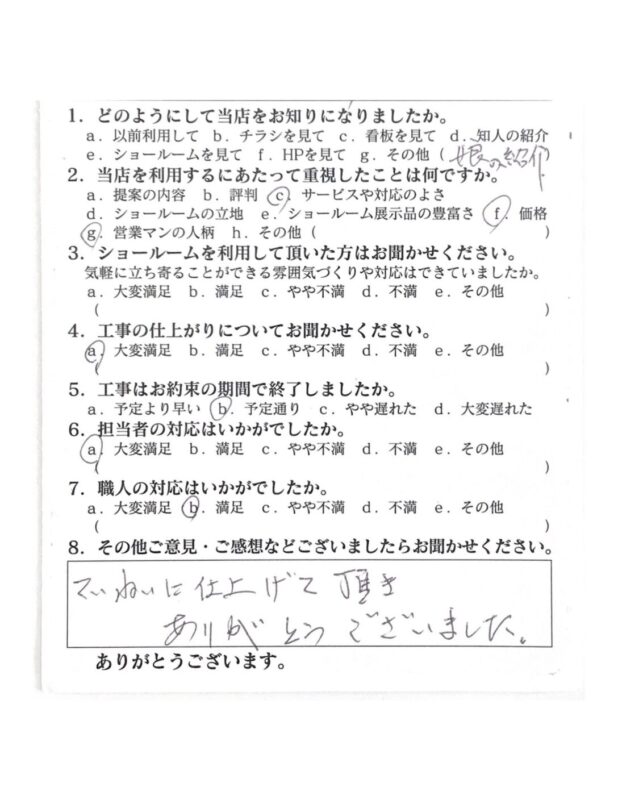 1. どのようにして当店をお知りになりましたか。
a. 以前利用して b. チラシを見て c. 看板を見て d. 知人の紹介
e. ショールームを見て f. HPを見て g. その他 ( 娘の紹介 )
2. 当店を利用するにあたって重視したことは何ですか。
a. 提案の内容 b. 評判 c. サービスや対応のよさ
d. ショールームの立地 e. ショールーム展示品の豊富さ f. 価格
g. 営業マンの人柄 h. その他 ( )
3. ショールームを利用して頂いた方はお聞かせください。
気軽に立ち寄ることができる雰囲気づくりや対応はできていましたか。
a. 大変満足 b. 満足 c. やや不満 d. 不満 e. その他
( )
4. 工事の仕上がりについてお聞かせください。
a. 大変満足 b. 満足 c. やや不満 d. 不満 e. その他
( )
5. 工事はお約束の期間で終了しましたか。
a. 予定より早い b. 予定通り c. やや遅れた d. 大変遅れた
6. 担当者の対応はいかがでしたか。
a. 大変満足 b. 満足 c. やや不満 d. 不満 e. その他
( )
7. 職人の対応はいかがでしたか。
a. 大変満足 b. 満足 c. やや不満 d. 不満 e. その他
( )
8. その他ご意見・ご感想などございましたらお聞かせください。
ていねいに仕上げて頂き
ありがとうございました。
ありがとうございます。